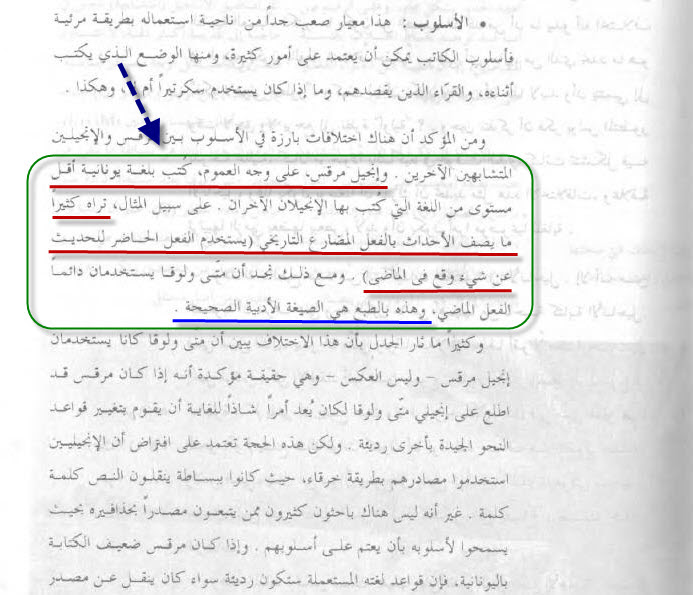 • الأسلوب : هذا معيار صعب جداً من ناحية استعماله بطريقة مرئية
فأسلوب الكاتب يمكن أن يعتمد على أمور كثيرة، ومنها الوضع الذي يكتب
أثناءه، والقراء الذين يقصدهم، وما إذا كان يستخدم سكرتيراً أم لا، وهكذا .
ومن المؤكد أن هناك اختلافات بارزة في الأسلوب بين مرقس والإنجيلين
المتشابهين الآخرين . وإنجيل مرقس، على وجه العموم، كُتب بلغة يونانية أقل
مستوى من اللغة التي كتب بها الإنجيلان الأخران . على سبيل المثال، تراه كثيراً
ما يصف الأحداث بالفعل المضارع التاريخي (يستخدم الفعل الحاضر للحديث
عن شيء وقع فى الماضى) . ومع ذلك نجد أن متّى ولوقا يستخدمان دائماً
الفعل الماضي، وهذه بالطبع هي الصيغة الأدبية الصحيحة .
وكثيراً ما ثار الجدل بأن هذا الاختلاف يبين أن متى ولوقا كانا يستخدمان
إنجيل مرقس – وليس العكس – وهي حقيقة مؤكدة أنه إذا كان مرقس قد
اطلع على إنجيلي متّى ولوقا لكان يُعد أمراً شاذاً للغاية أن يقوم بتغيير قواعد
النحو الجيدة بأخرى رديئة . ولكن هذه الحجة تعتمد على افتراض أن الإنجيليين
استخدموا مصادرهم بطريقة خرقاء، حيث كانوا ببساطة ينقلون النص كلمة
كلمة . غير أنه ليس هناك باحثون كثيرون ممن يتبعون مصدراً بحذافيره بحيث
يسمحوا لأسلوبه بأن يعتم على أسلوبهم . وإذا كان مرقس ضعيف الكتابة
باليونانية، فإن قواعد لغته المستعملة ستكون رديئة سواء كان ينقل عن مصدر